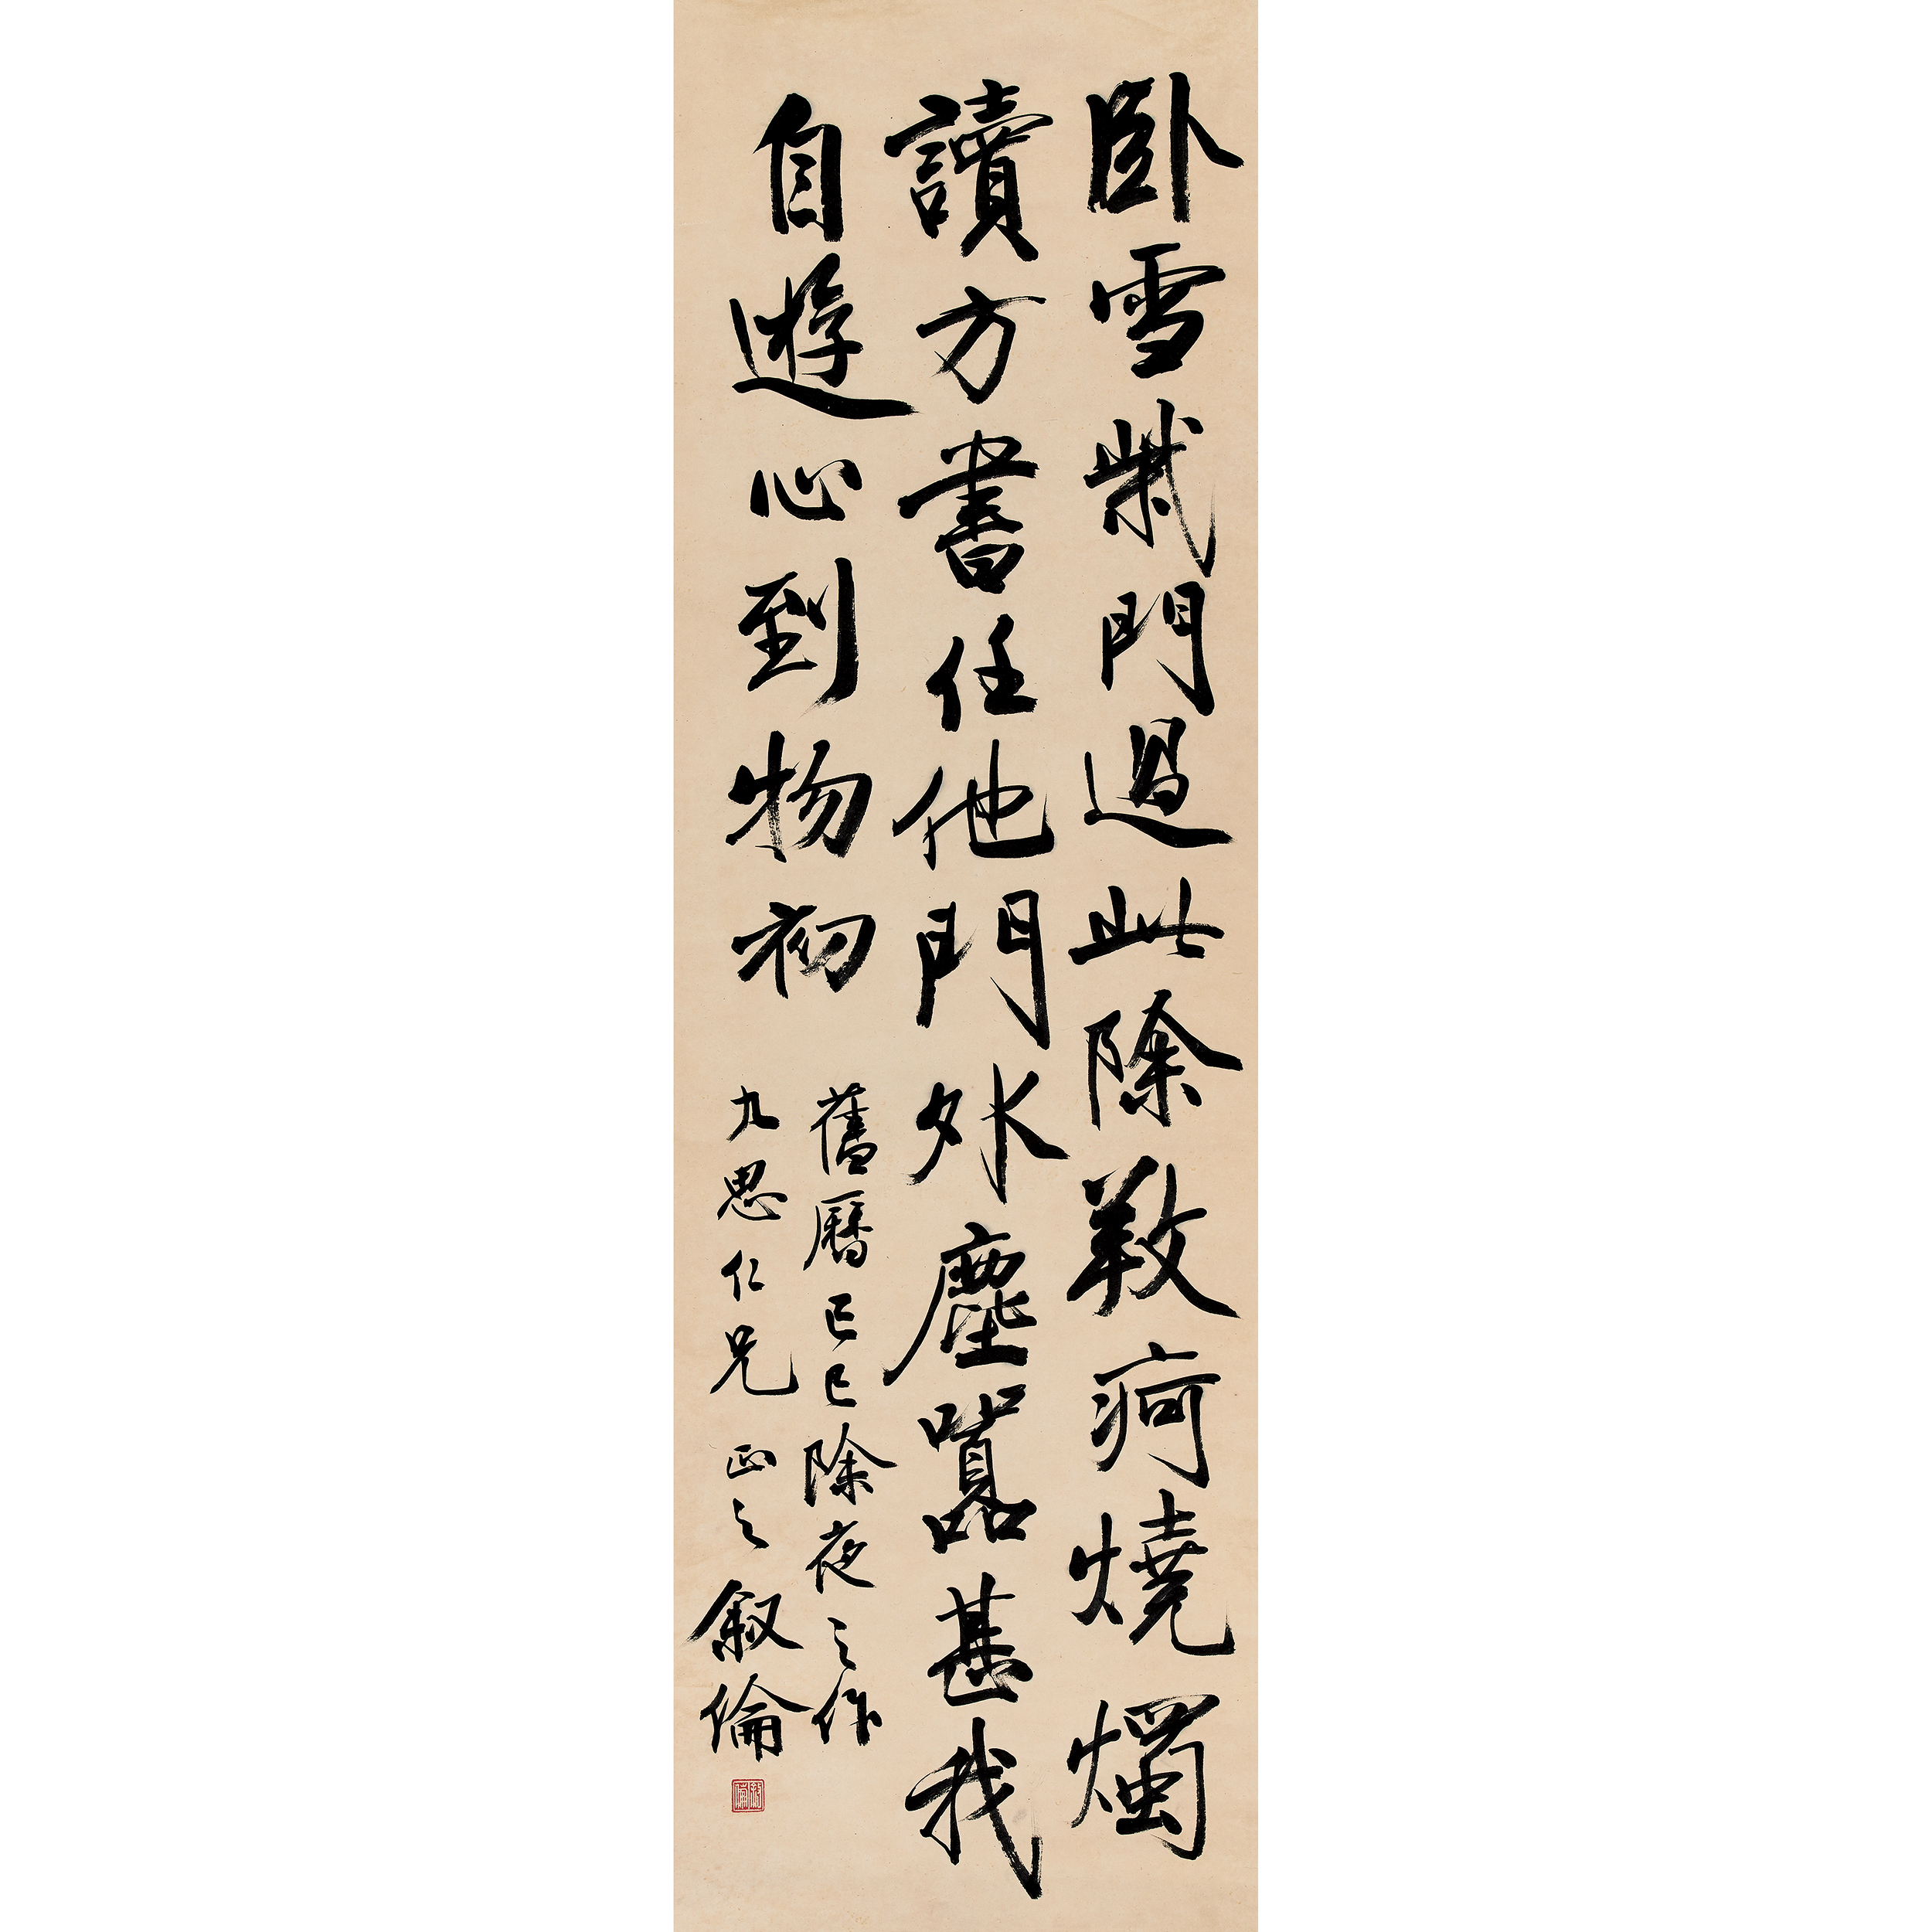 臥雪柴門過此除教痾燒燭
讀方書任他門外塵囂甚我
自遊心到物初
舊曆己巳除夜之作
九思仁兄 正之 叙倫